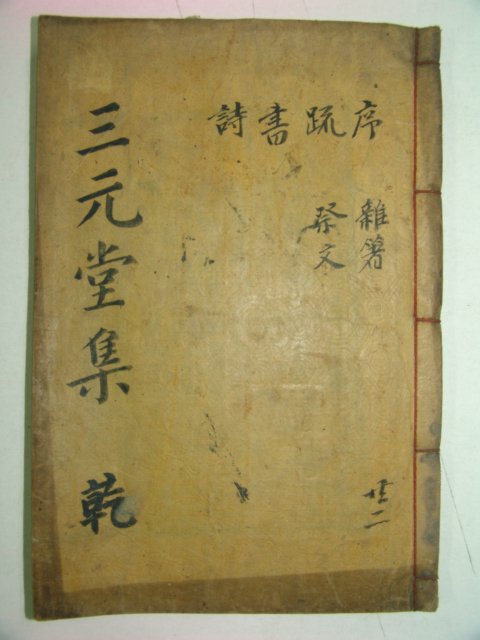 序疏書詩
雜箸
祭文
二
三元堂集 乾